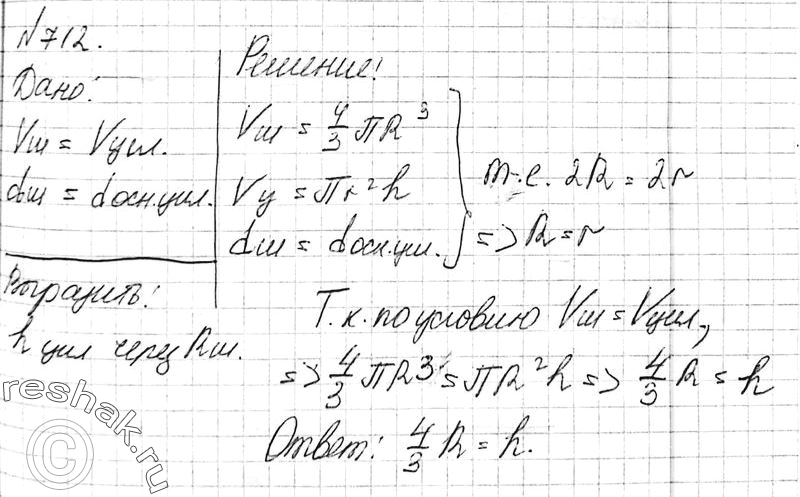 №712.
Дано:
Vш = Vцил.
dш = dосн.цил.
Выразить:
h цил через Rш.
Решение:
Vш = 4/3 πR³
Vц = πr²h
dш = dосн.цил.
т.е. 2R = 2r
=> R = r
Т.к. по условию Vш = Vцил,
=> 4/3 πR³ = πR²h => 4/3 R = h
Ответ: 4/3 R = h.
© reshak.ru